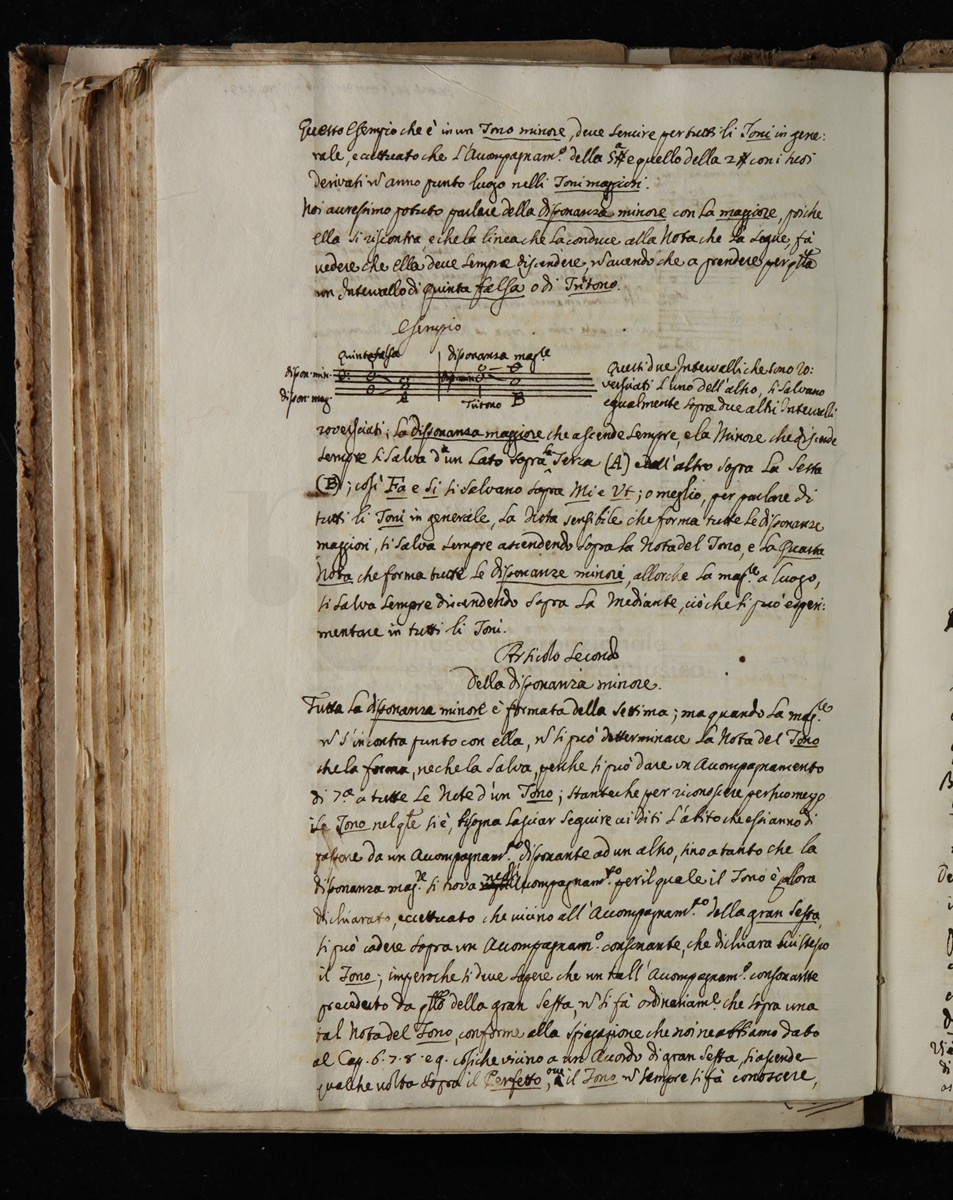 Questo Esempio che è in un Tono minore, deve servire per tutti li Toni in gene:
rale, eccettuato che L'Accompagnam.o della 5a# e quello della 2# con i suoi
derivati ñ anno punto luogo nelli Toni maggiori.
Noi avressimo potuto parlare della dissonanza minore con La maggiore, poiche
ella si riscontra, e che la linea che La conduce alla Nota che La segue, fà
vedere che Ella deve sempre discendere, ñ avendo che a prendere per
un Intervallo di quinta falsa o di Tritono.
Esempio
Quinta falsa | dissonanza mag.le
disson. min.
disson. mag.
A Tritono B
Questi due Intervalli che sono ro:
versciati L'uno dell'altro, si salvano
egualmente sopra due altri Intervalli
roversciati; La dissonanza maggiore che ascende sempre, e la Minore che discende
sempre si salva da un Lato sopra la Terza (A) e dall'altro sopra La Sesta
(B); così Fa e Si si salvano sopra Mi e Vt; o meglio, per parlare di
tutti li Toni in generale, La Nota sensibile che forma tutte Le dissonanze
maggiori, si salva sempre ascendendo sopra la Nota del Tono, e La Quarta
Nota che forma tutte Le dissonanze minori, allorche La mag.re a luogo,
si salva sempre discendendo sopra La Mediante, ciò che si può esperi:
mentare in tutti li Toni.
Articolo Secondo
Della dissonanza minore.
Tutta La dissonanza minore è formata della settima; ma quando La mag.re
ñ s'incontra punto con ella, ñ si può determinare La Nota del Tono
che la forma, ne che la salva, perche si può dare un Accompagnamento
di 7.a a tutte Le Note d'un Tono; stanteche per riconoscere per suo mezzo
il Tono nel si è, bisogna Lasciar seguire ai diti L'abito che essi anno di
passare da un Accompagnam.to dissonante ad un altro, sino a tanto che la
dissonanza mag.re si trova negl'Accompagnam.to per il quale il Tono è allora
dichiarato, eccettuato che vicino all'Accompagnam.to della gran Sesta,
si può cadere sopra un Accompagnam.o consonante, che dichiara
il Tono; imperoche si deve sapere che un tall'Accompagnam.o consonante
preceduto da della gran Sesta, ñ si fà ordinariam.e che sopra una
tal Nota del Tono, conforme alla spiegazione che noi ne abbiamo dato
al Cap. 6. 7. 8. e 9. cosiche vicino a un Acordo di gran Sesta, si ascende
qualche volta sopra il Perfetto, ove il Tono ñ sempre si fà conoscere,